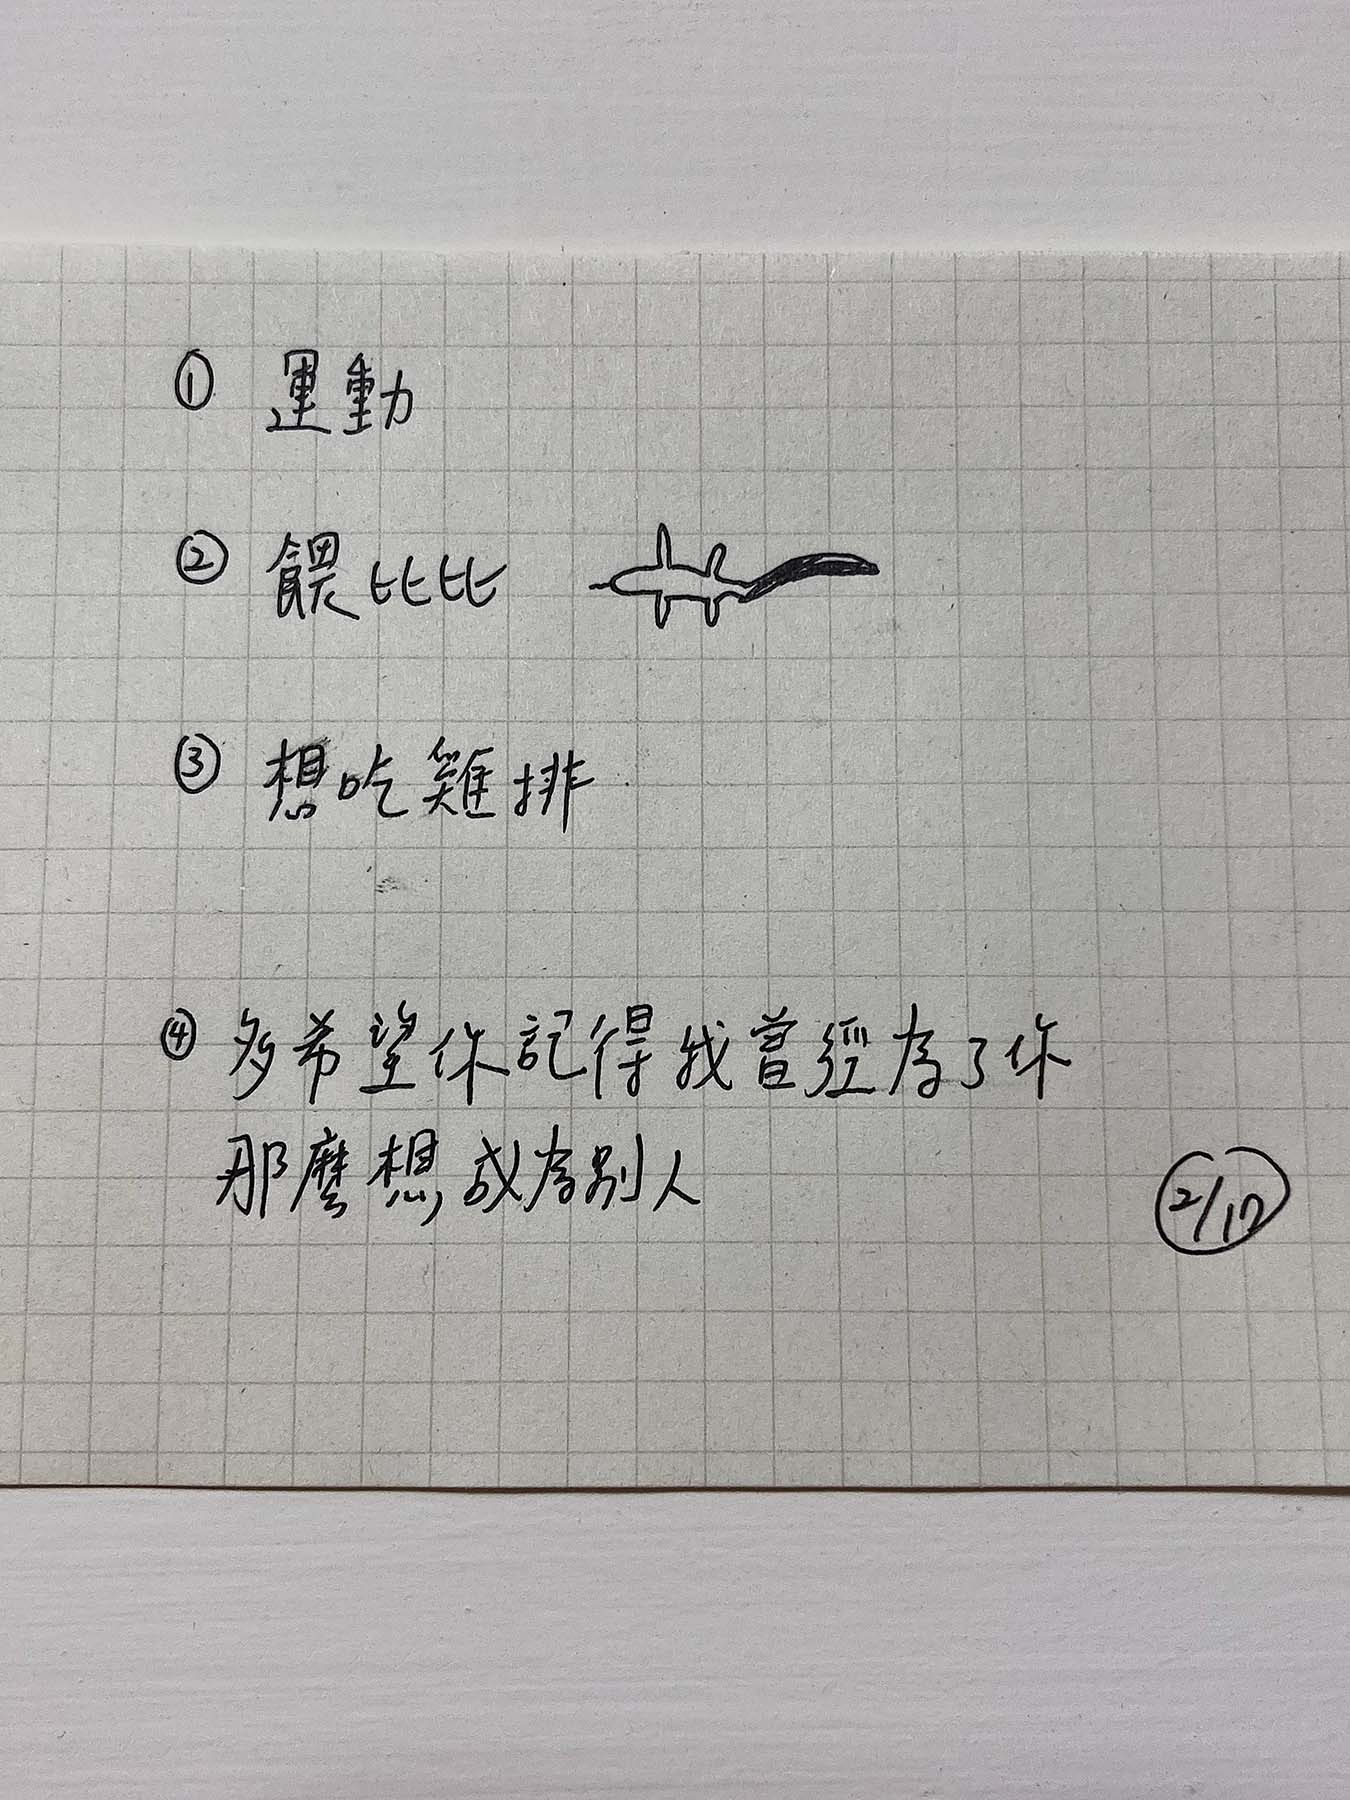 ① 運動
② 餵比比
③ 想吃雞排
④ 多希望你記得我曾經為了你
那麼想成為別人
2/17